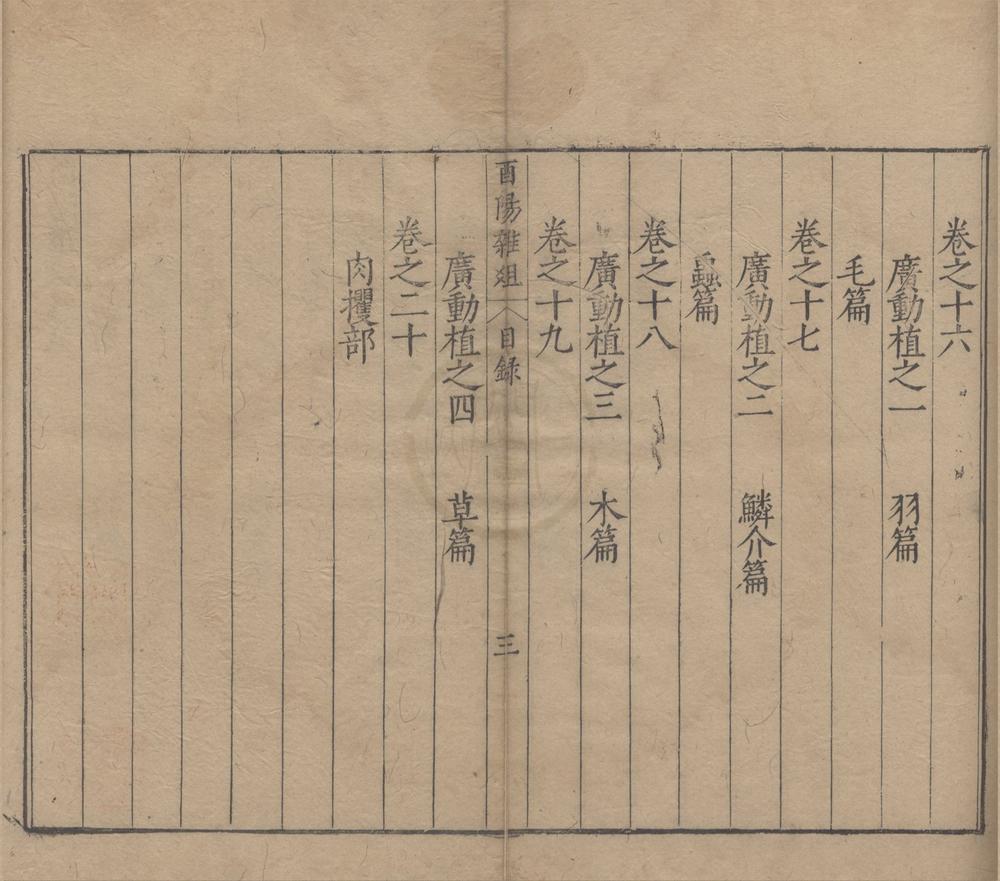 卷之十六
廣動植之一　羽篇
毛篇
卷之十七
廣動植之二　鱗介篇
蟲篇
卷之十八
廣動植之三　木篇
卷之十九
酉陽雜俎　目録　三
廣動植之四　草篇
卷之二十
肉攫部